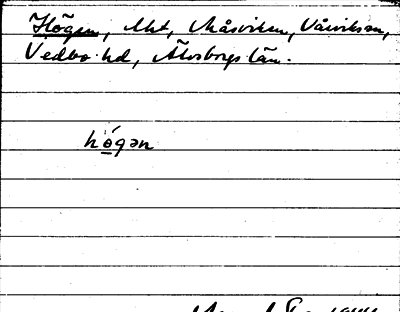 Högen, Akt, Måsviken, Våsviksn,
Vedbo hd, Älvsborgs län.
högən